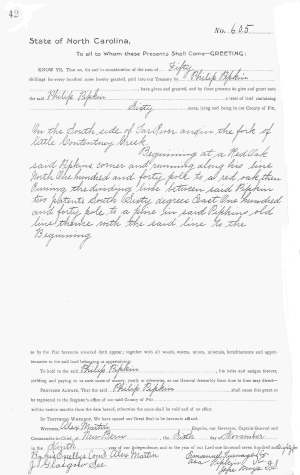 42
No. 625
State of North Carolina,
To all to Whom these Presents Shall Come—GREETING:
KNOW YE, That we, for and in consideration of the sum of Fifty
shillings for every hundred acres hereby granted, paid into our Treasury by Philip Pipkin
have given and granted, and by these presents do give and grant unto
the said Philip Pipkin a tract of land containing
Sixty acres, lying and being in our County of Pitt
On the South side of and in the fork of
little Contentney Creek
Beginning at a Red Oak
said Pipkins corner and running along his line
North One hundred and forty pole to a red oak, then
the dividing line between said Pipkin
two patents South Sixty degrees East One hundred
and forty pole to a pine in said Pipkins old
line thence with the said line to the
Beginning
as by the Plat hereunto annexed doth appear; together with all woods, waters, mines, minerals, hereditaments and appurtenances
to the said land belonging or appertaining:
To hold to the said Philip Pipkin his heirs and assigns forever,
yielding and paying to us such sums of money yearly or otherwise, as our General Assembly from time to time may direct.
PROVIDED ALWAYS, That the said Philip Pipkin shall cause this grant to
be registered in the Register's office of our said County of Pitt
within twelve months from the date hereof, otherwise the same shall be void and of no effect.
IN TESTIMONY WHEREOF, We have caused our Great Seal to be hereunto affixed.
WITNESS, Alex Martin Esquire, our Governor, Captain-General and
Commander in Chief, at New Bern the Sixth day of November
in the year of our Independence and in the year of our Lord one thousand seven hundred and
By his Excellys Com'd Alex Martin
J Glasgow Sec